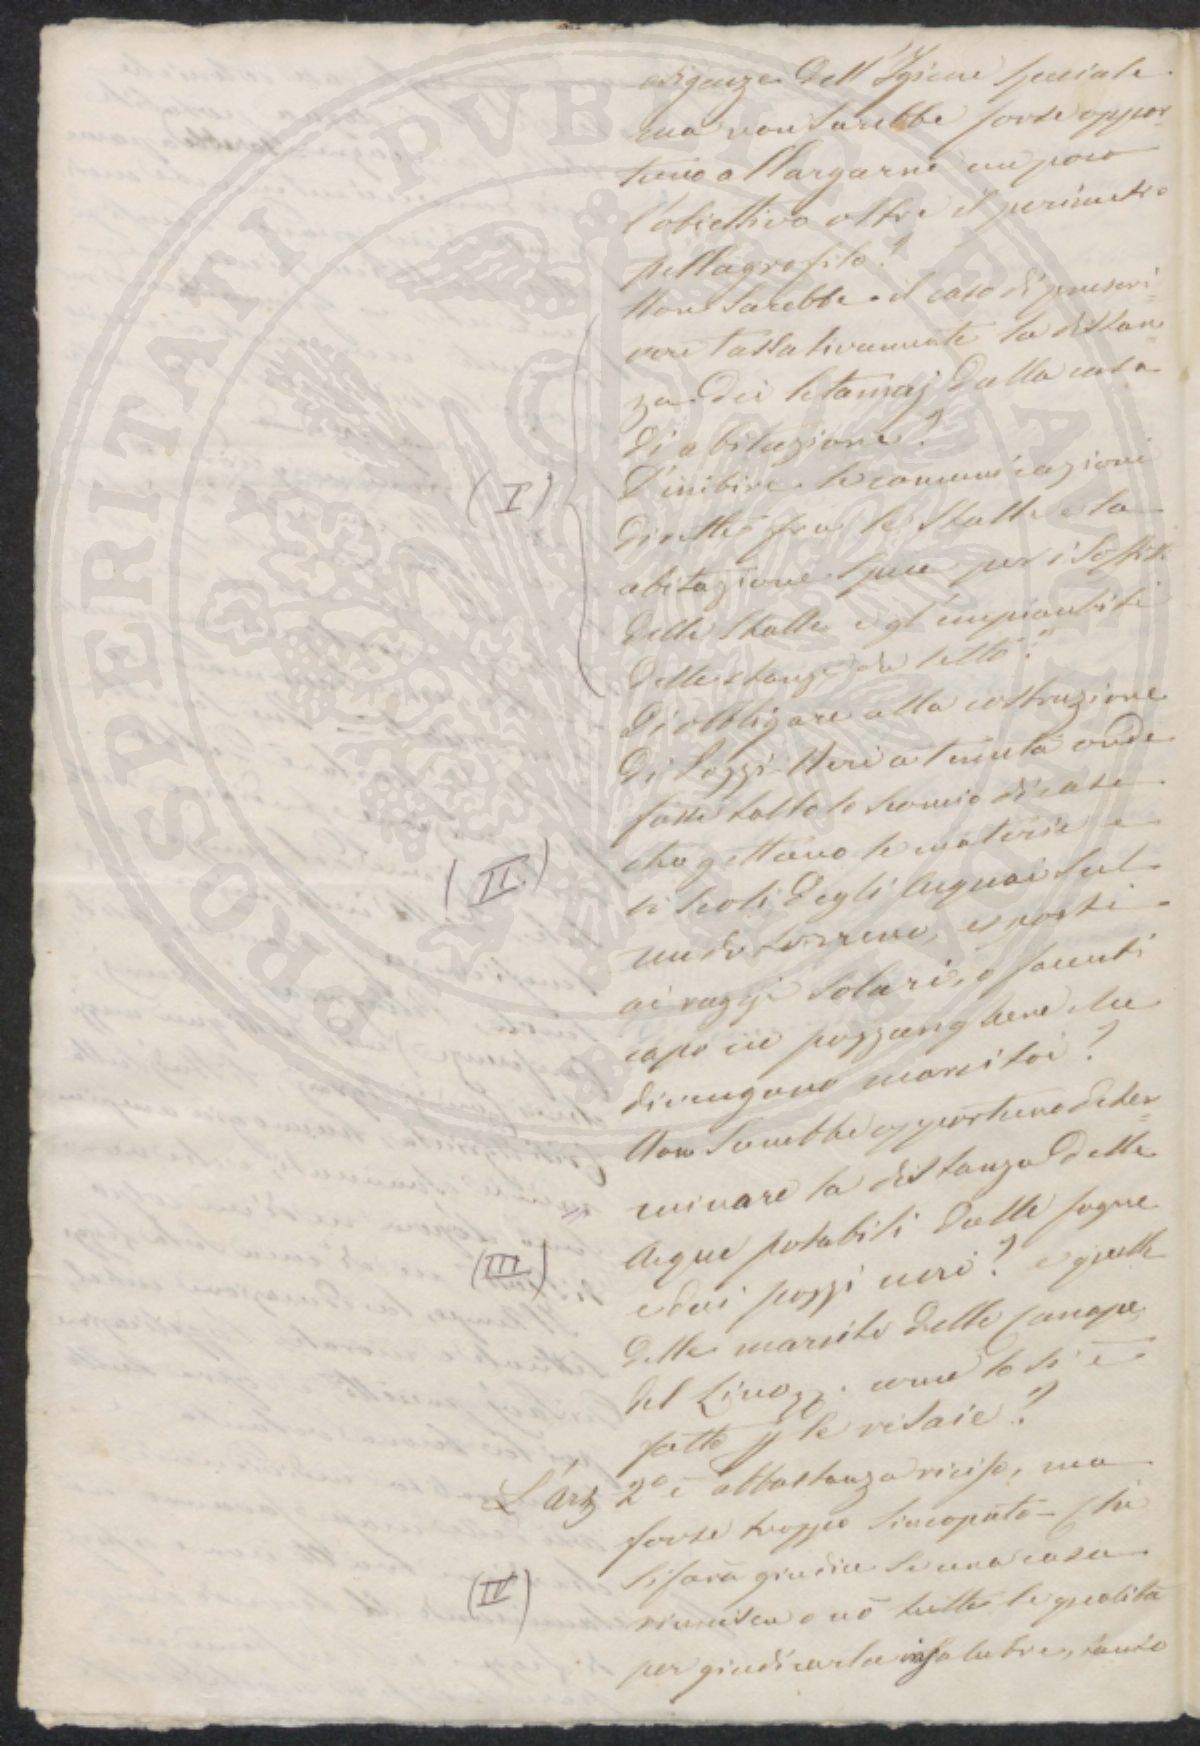 esigenze dell'Igiene speciale
ma non sarebbe forse oppor-
tuno allargarne un poco
l'obiettivo oltre il perimetro
pellagrofilo?
Non sarebbe il caso di prescri-
vere tassativamente la distan-
za dei letamaj dalla casa
di abitazione?
(I) D'inibire le comunicazioni
dirette fra le stalle e la
abitazione pure per i soffitti
delle stalle e gl'impiantiti
delle stanze da letto?
Di obbligare alla costruzione
di Pozzi-Neri a tenuta onde
fosse tolto lo sconcio di case
(II.) che gettano le materie e
li scoli degli Acquai sul
nudo terreno, esposti
ai raggi solari, o facenti
capo in pozzanghere che
divengono marcitoi?
Non sarebbe opportuno deter-
minare la distanza delle
(III) Acque potabili dalle fogne
e dei pozzi neri? e quella
delle marcite delle Canape,
del Lino ZZ. come lo si è
fatto p le risaie?
L'Art 2º è abbastanza reciso, ma
forse troppo sincopato - Chi
(IV) si farà giudice se una casa
riunisca o nò tutte le qualità
per giudicarla insalubre, tanto
PROSPERITATI PVBLICAE AVGENDAE